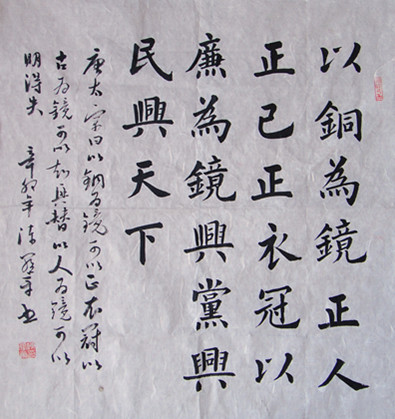 以銅為鏡正人
正己正衣冠以
廉為鏡興黨興
民興天下
唐太宗曰以銅為鏡可以正衣冠以
古為鏡可以知興替以人為鏡可以
明得失 辛卯年 陈